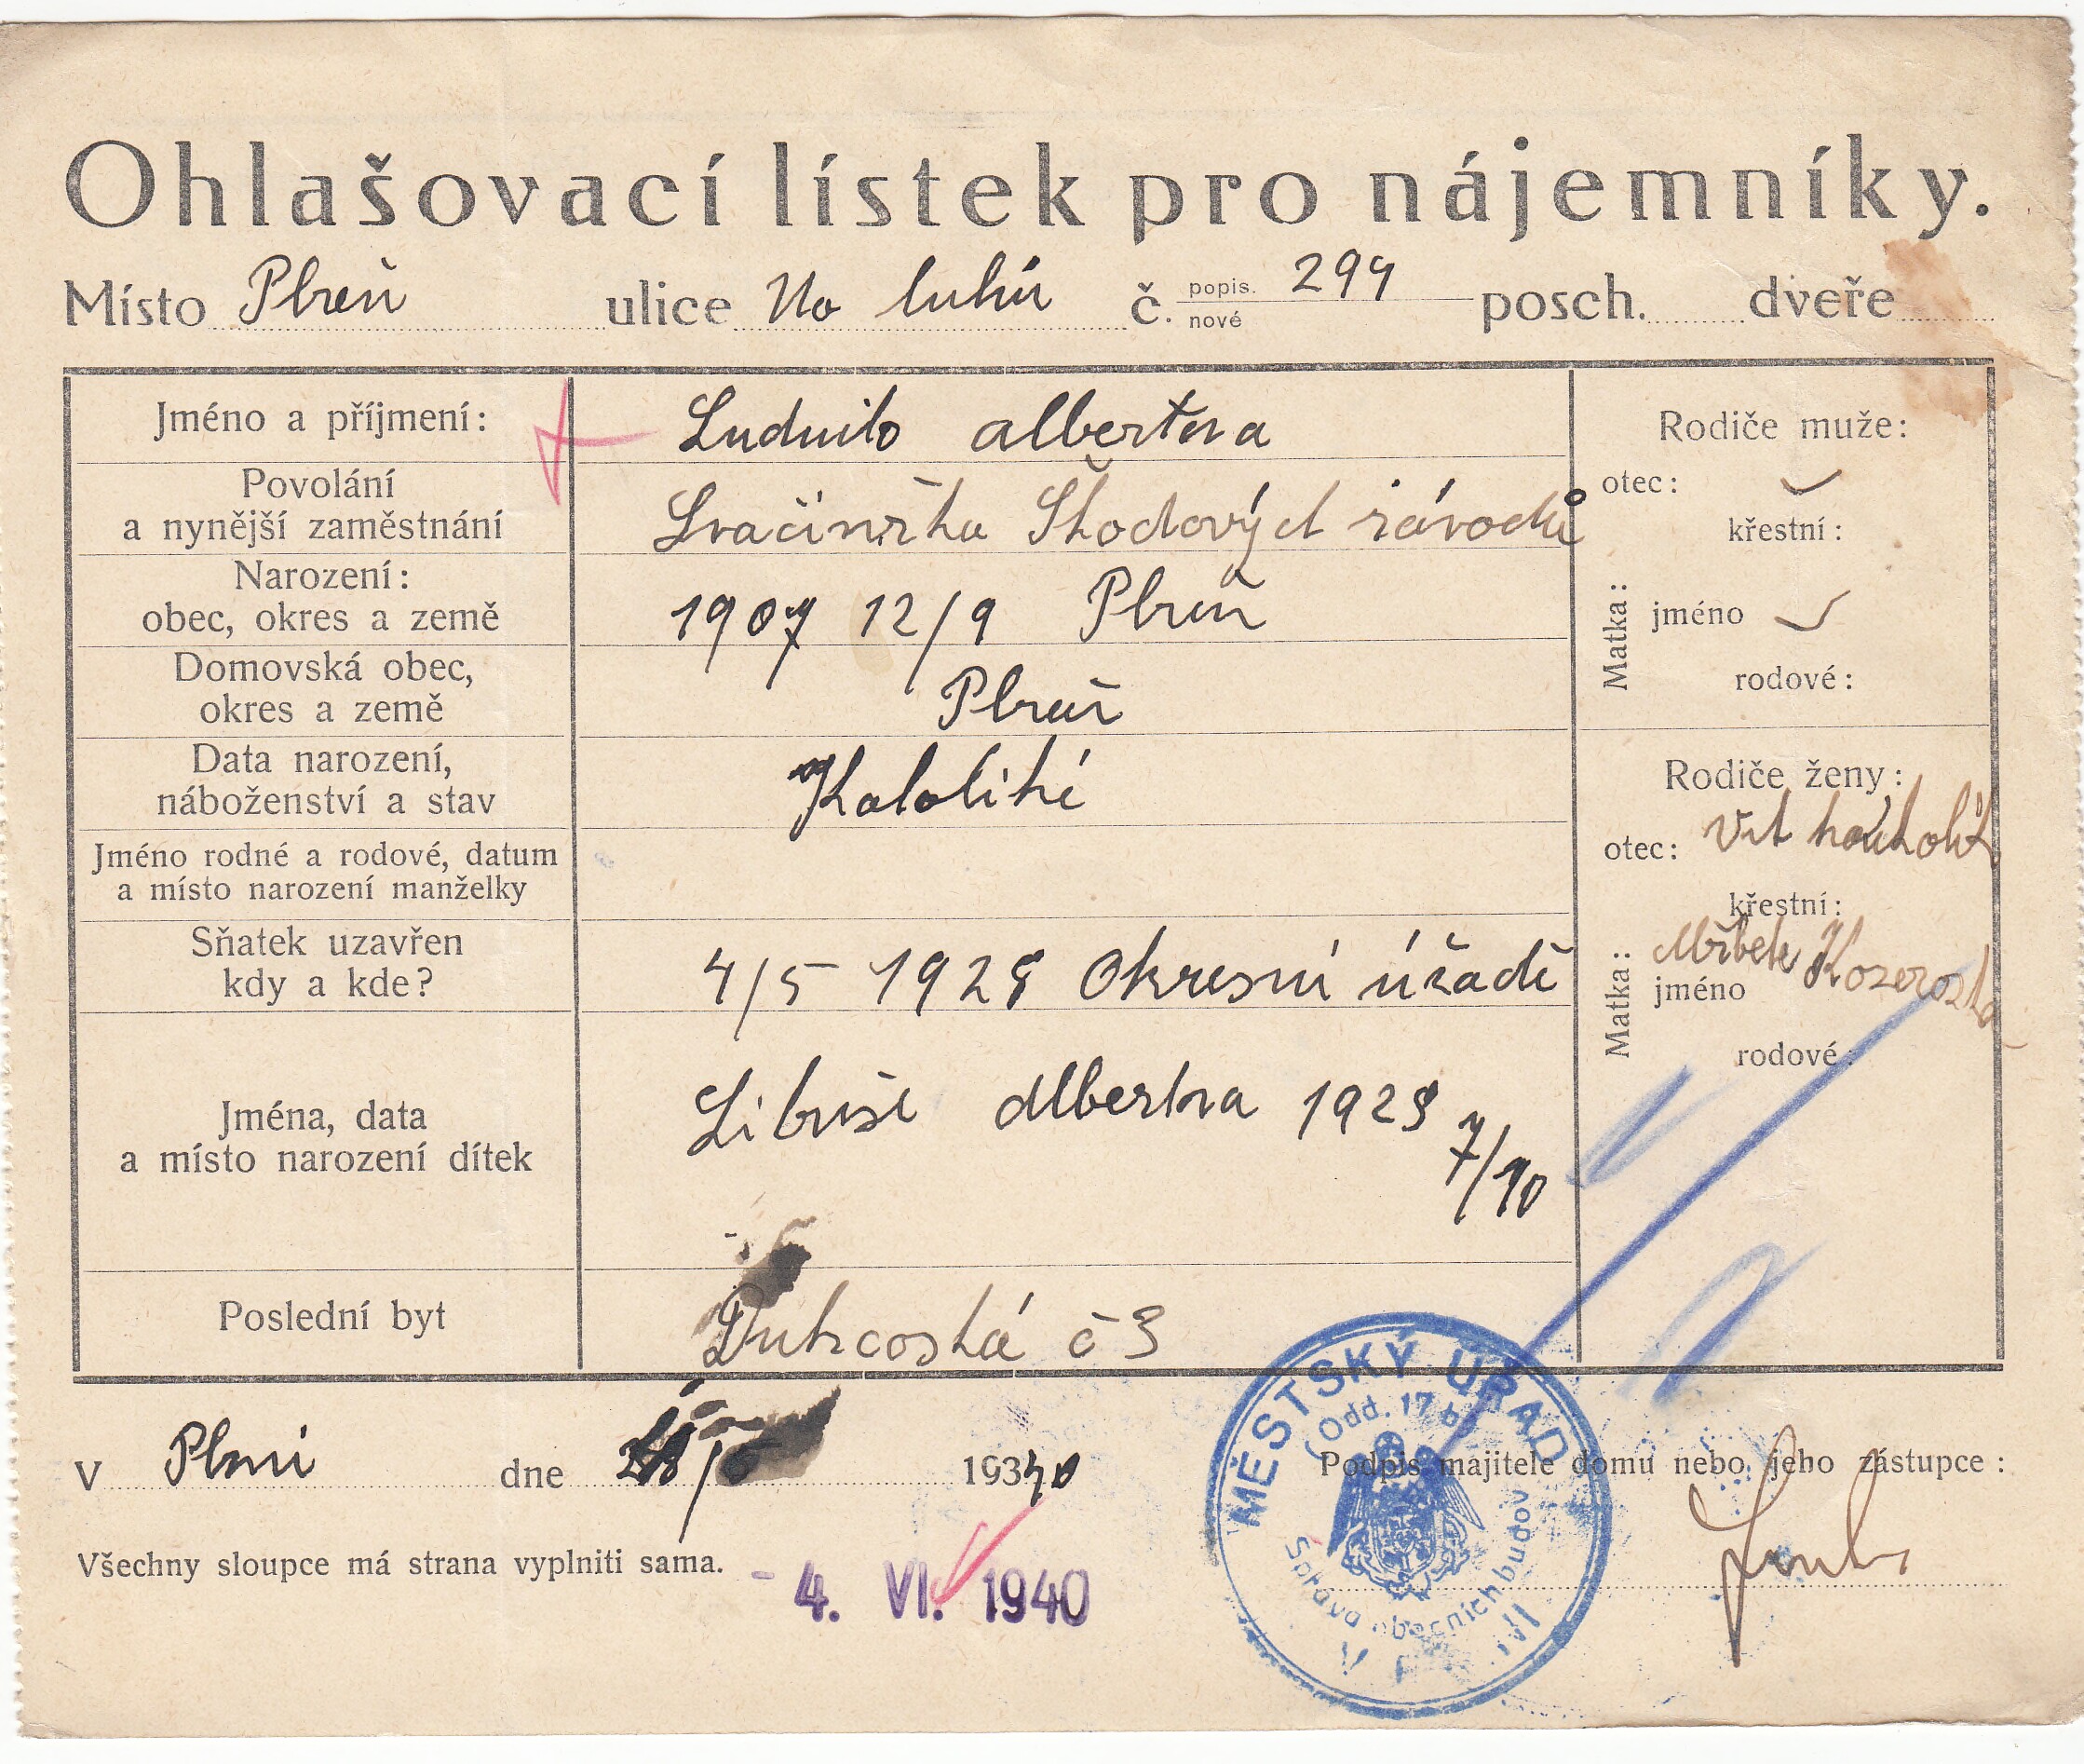 Ohlašovací lístek pro nájemníky.
Místo Plzeň ulice Na luhu č. popis. nové 294 posch. dveře
Jméno a příjmení: Ludmila albertova
Povolání
a nynější zaměstnání
Svačinářka Škodových závodů
Narození:
obec, okres a země
1907 12/9 Plzeň
Domovská obec,
okres a země
Plzeň
Data narození,
náboženství a stav
Katolické
Jméno rodné a rodové, datum
a místo narození manželky
Sňatek uzavřen
kdy a kde?
4/5 1928 Okresní úřadě
Jména, data
a místo narození dítek
Libuše Albertva 1928
7/10
Poslední byt
č 3
Rodiče muže:
otec:
křestní:
Matka: jméno
rodové:
Rodiče ženy:
otec: Vít
křestní:
Matka: jméno
rodové:
V Plzni dne 1934 40
Podpis majitele domu nebo jeho zástupce:
Všechny sloupce má strana vyplniti sama.
- 4. VI. 1940
MĚSTSKÝ ÚŘAD
Odd. 17 b
Správa obecních budov